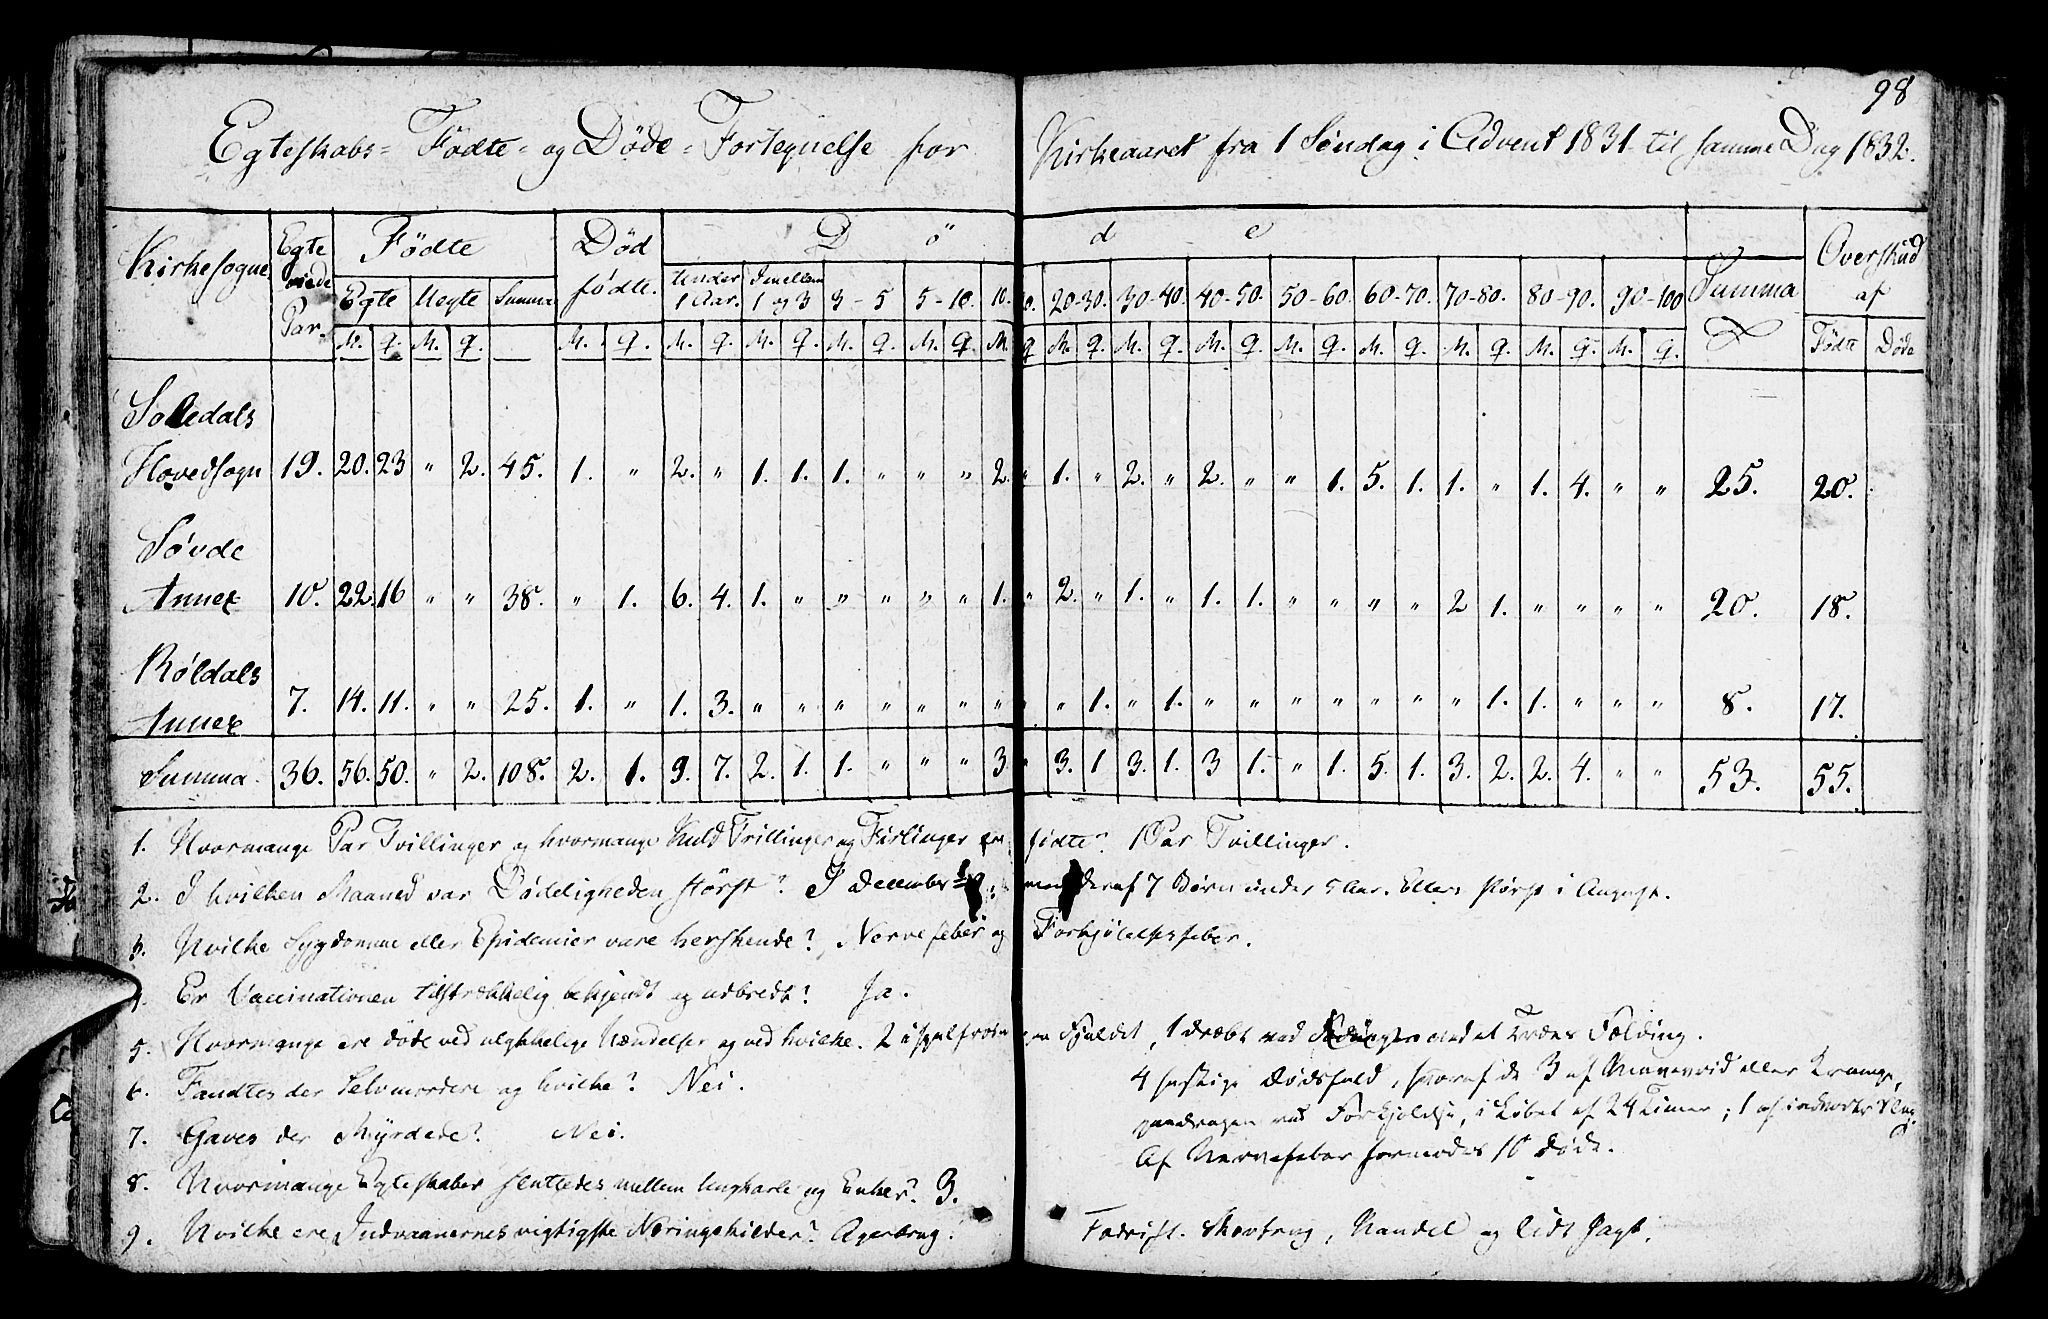 98
Egteskabs- Fødte- og Døde-Fortegnelse for Kirkeaaret fra 1 Søndag i Advent 1831 til samme Dag 1832.
Kirkesogne Egte viede Par. Fødte Død fødte. D ö d e Summa Overskud af
Egte Uegte Summa Under 1 Aar. Imellem 1 og 3 3-5 5-10. 10. 20. 20-30. 30-40. 40-50. 50-60. 60-70. 70-80. 80-90. 90-100
M. q. M. q. M. q. M. q. M. q. M. q. M. q. M. q M. q. M. q. M. q. M. q. M. q. M. q. M. q. M. q. Fødte Døde
Suledals
Hovedsogn 19. 20. 23 " 2. 45. 1. " 2. " 1. 1. 1. " " " 2. " 1. " 2. " 2. " " 1. 5. 1. 1. " 1. 4. " " 25. 20.
Søvde
Annex 10. 22. 16 " " 38. " 1. 6. 4. 1. " " " " " 1. " 2. " 1. " 1. 1. " " " " 2 1. " " " " 20. 18.
Røldals
Annex 7. 14. 11. " " 25. 1. " 1. 3. " " " " " " " " " 1. " 1. " " " " " " " 1. 1. " " " 8. 17.
Summa. 36. 56. 50. " 2. 108. 2. 1. 9. 7. 2. 1. 1. " " " 3 " 3. 1 3. 1. 3 1. " 1. 5. 1. 3. 2. 2. 4. " " 53. 55.
1. Hvormange Par Tvillinger og hvormange Kuld Trillinger og Firlinger ere fødte? 1 Par Tvillinger.
2. I hvilken Maaned var Dødeligheden størst? I December deraf 7 Børn under 5 Aar. Ellers størst i August.
3. Hvilke Sygdomme eller Epidemier vare herskende? Nervefeber og Forkjølelsesfeber.
4. Er Vaccinationen tilstrækkelig bekjendt og udbredt? Ja.
5. Hvormange ere døde ved ulykkelige Hændelser og ved hvilke. 2 ihjelfrosne paa Fjeldet, 1 dræbt ved et Træes Fælding.
6. Fandtes der Selvmordere og hvilke? Nei.
4 hastige Dødsfald, hvoraf de 3 af eller Krampe,
7. Gaves der Myrdede? Nei.
ved Forkjølelse, i Løbet af 24 Timer; 1 af indvortes Slag.
Af Nervefeber formodes 10 døde.
8. Hvormange Egteskaber sluttedes mellem Ungkarle og Enker? 3.
9. Hvilke ere Indvaanernes vigtigste Næringskilder? Agerbrug, Fædrift. Skovbrug, Handel og lidt Jagt.